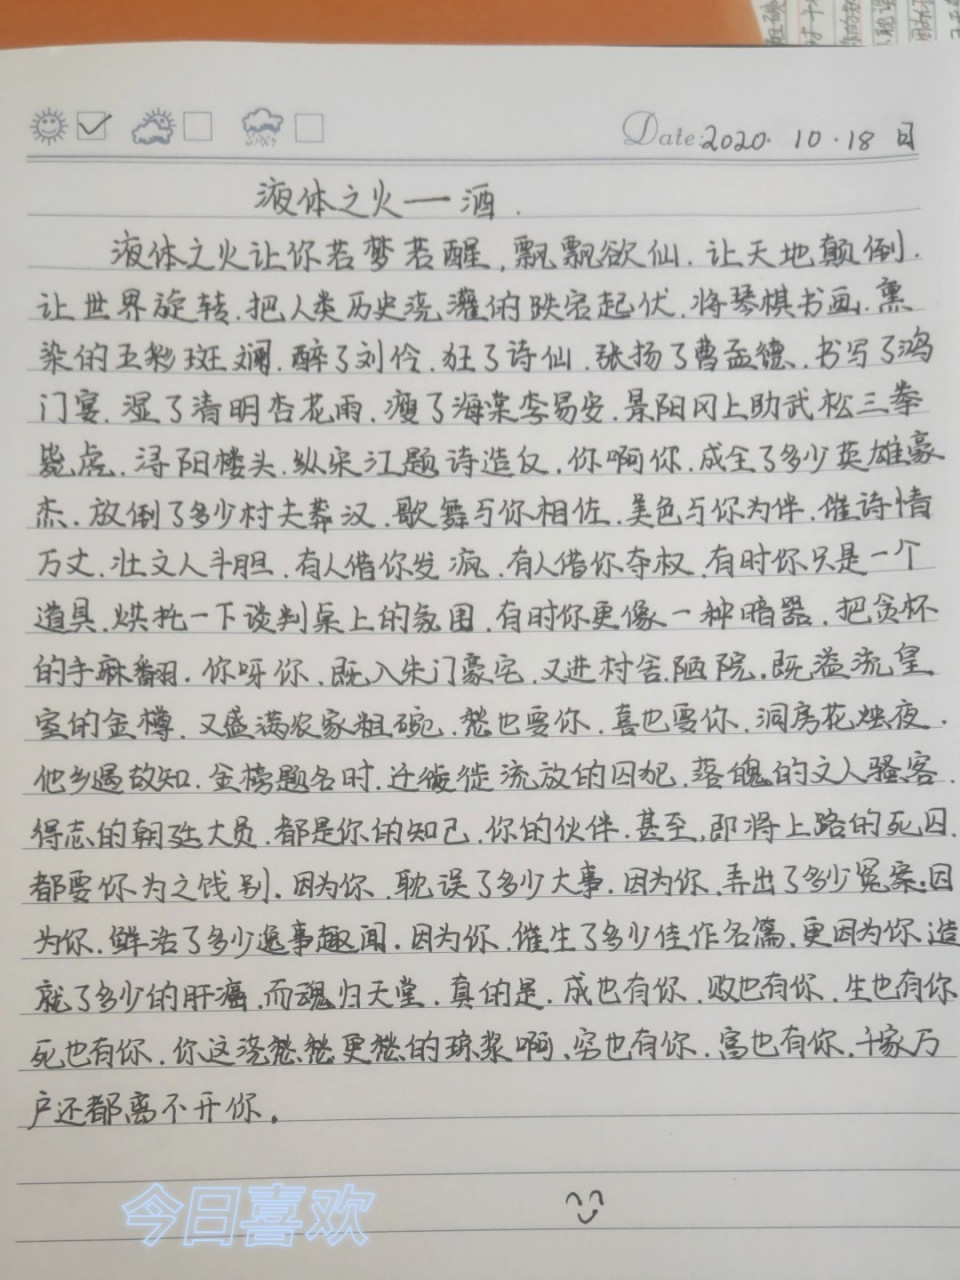 Date: 2020. 10. 18 日
液体之火一酒.
液体之火让你若梦若醒,飘飘欲仙.让天地颠倒.
让世界旋转.把人类历史浇灌的跌宕起伏.将琴棋书画.熏
染的五彩斑斓.醉了刘伶.狂了诗仙.张扬了曹孟德.书写了鸿
门宴.湿了清明杏花雨.瘦了海棠李易安.景阳冈上助武松三拳
毙虎.浔阳楼头.纵宋江题诗造反.你啊你.成全了多少英雄豪
杰.放倒了多少村夫莽汉.歌舞与你相佐.美色与你为伴.催诗情
万丈.壮文人斗胆.有人借你发疯.有人借你夺权.有时你只是一个
道具.烘托一下谈判桌上的氛围.有时你更像一种暗器.把贪杯
的手麻翻.你呀你.既入朱门豪宅.又进村舍陋院.既溢流皇
室的金樽.又盛满农家粗碗.愁也要你.喜也要你.洞房花烛夜.
他乡遇故知.金榜题名时.迁徙流放的囚犯.落魄的文人骚客.
得志的朝廷大员.都是你的知己.你的伙伴.甚至.即将上路的死囚.
都要你为之饯别.因为你.耽误了多少大事.因为你.弄出了多少冤案.因
为你.鲜活了多少逸事趣闻.因为你.催生了多少佳作名篇.更因为你.造
就了多少的肝癌.而魂归天堂.真的是.成也有你.败也有你.生也有你
死也有你.你这浇愁愁更愁的琼浆啊.穷也有你.富也有你.千家万
户还都离不开你。
今日喜欢